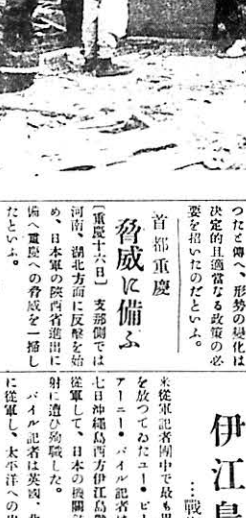 つたと傳へ、形勢の變化は
決定的且適當なる政策の必
要を招いたのだといふ。
首都重慶
脅威に備ふ
【重慶十六日】 支那側では
河南、湖北方面に反撃を始
め、日本軍の陝西省進出に
備へ重慶への脅威を一掃し
たといふ。
伊江島
…戰
來從軍記者團中で最も異
を放つてゐたユー・ピー
アーニー・パイル記者は
七日沖繩島西方伊江島
從軍して、日本の機關
射に遭ひ殉職した。
パイル記者は英國、北
に從軍し、太平洋への出